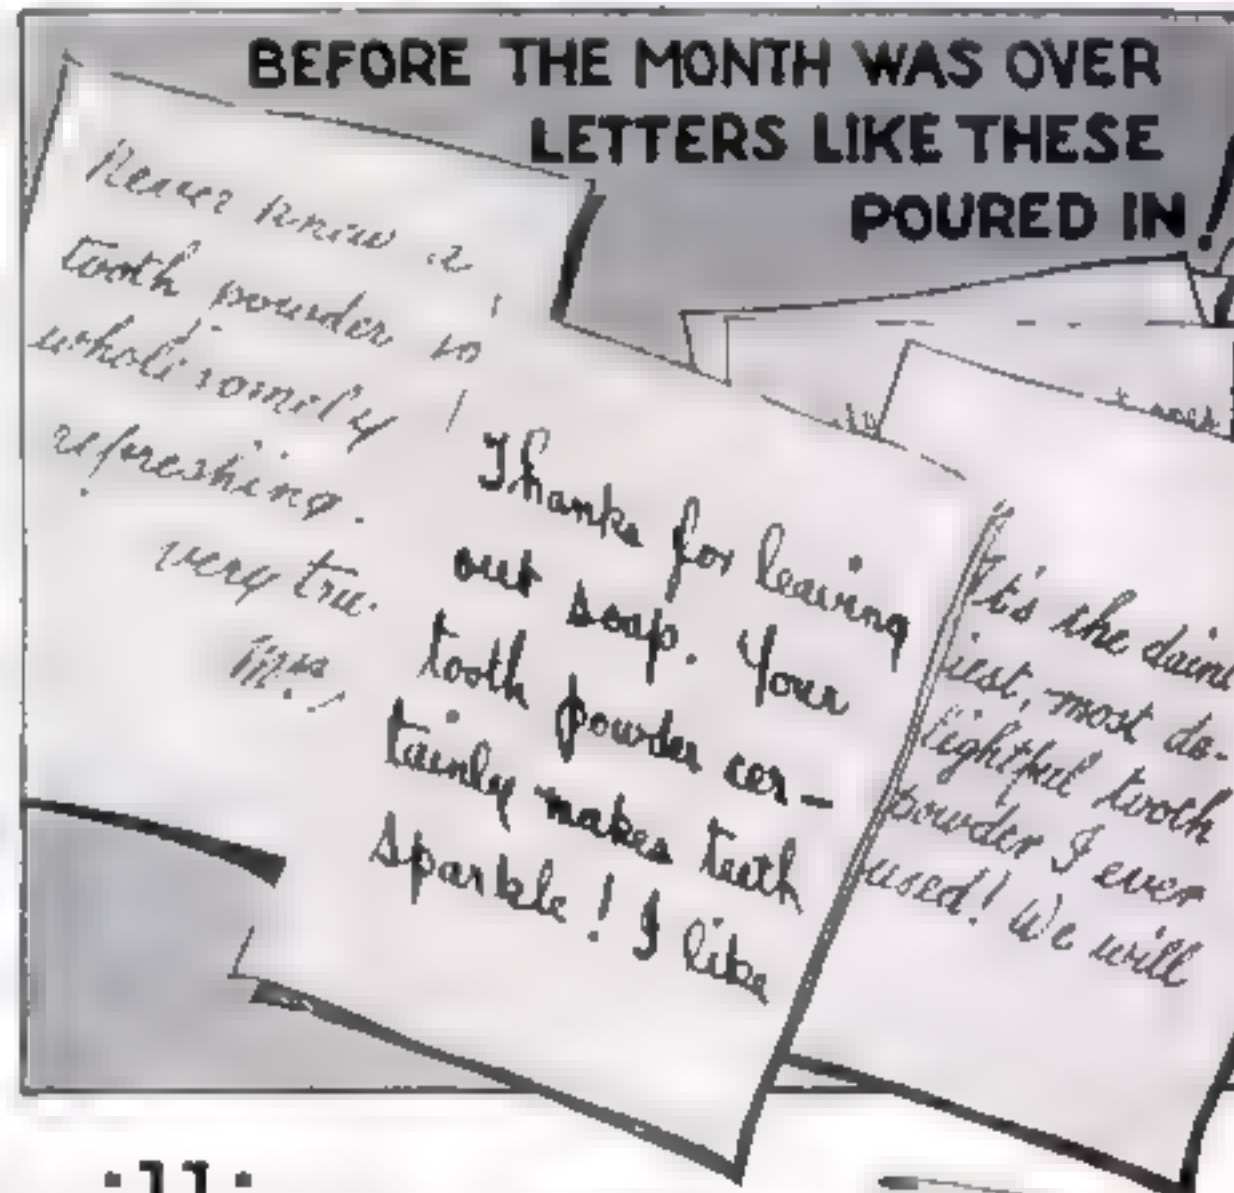 BEFORE THE MONTH WAS OVER
LETTERS LIKE THESE
POURED IN!
Never knew a
tooth powder so
wholesomely
refreshing.
very tru
Mrs
Thanks for leaving
out soap. Your
tooth powder cer-
tainly makes teeth
sparkle! I like
It's the daint
iest, most de-
lightful tooth
powder I ever
used! We will